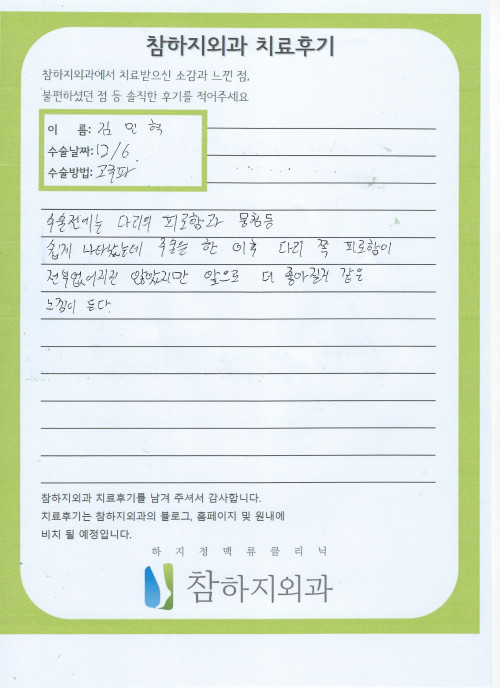 참하지외과 치료후기
참하지외과에서 치료받으신 소감과 느낀 점,
불편하셨던 점 등 솔직한 후기를 적어주세요
이 름: 김 민 혁
수술날짜: 12/6.
수술방법: 고주파
수술전에는 다리의 피로함과 뭉침등
쉽게 나타났는데 수술을 한 이후 다리 쪽 피로함이
전부없어지진 않았지만 앞으로 더 좋아질거 같은
느낌이 든다.
참하지외과 치료후기를 남겨 주셔서 감사합니다.
치료후기는 참하지외과의 블로그, 홈페이지 및 원내에
비치 될 예정입니다.
하지정맥류클리닉
참하지외과